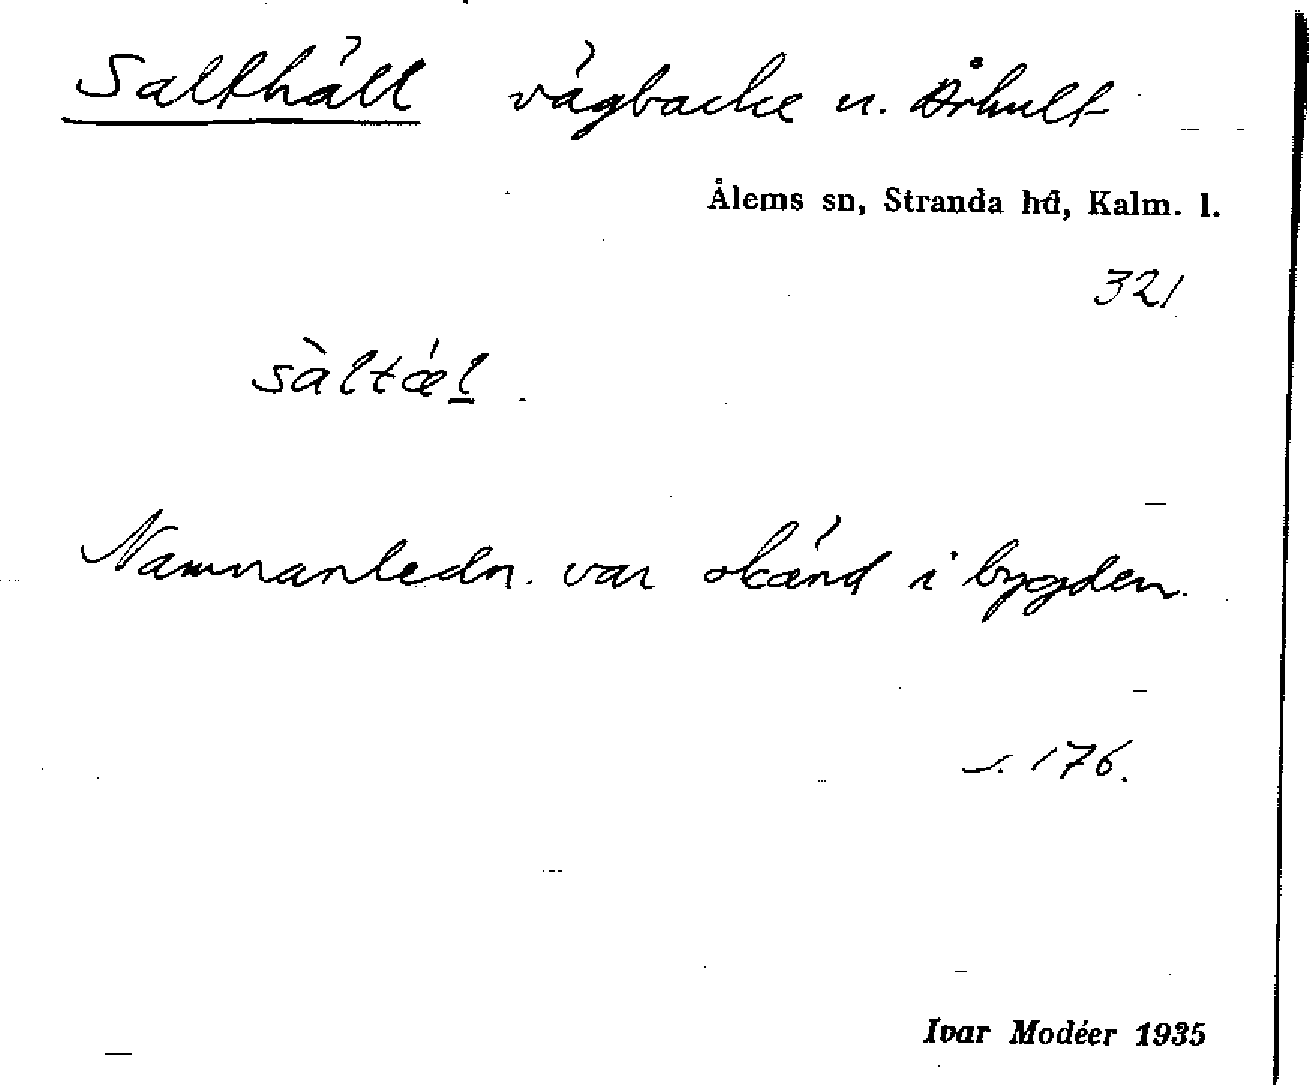 Salthäll vägbacke u. Århult
Ålems sn, Stranda hd, Kalm. l.
321
sàltǽl.
Namnanledn. var okänd i bygden.
s. 176.
Ivar Modéer 1935